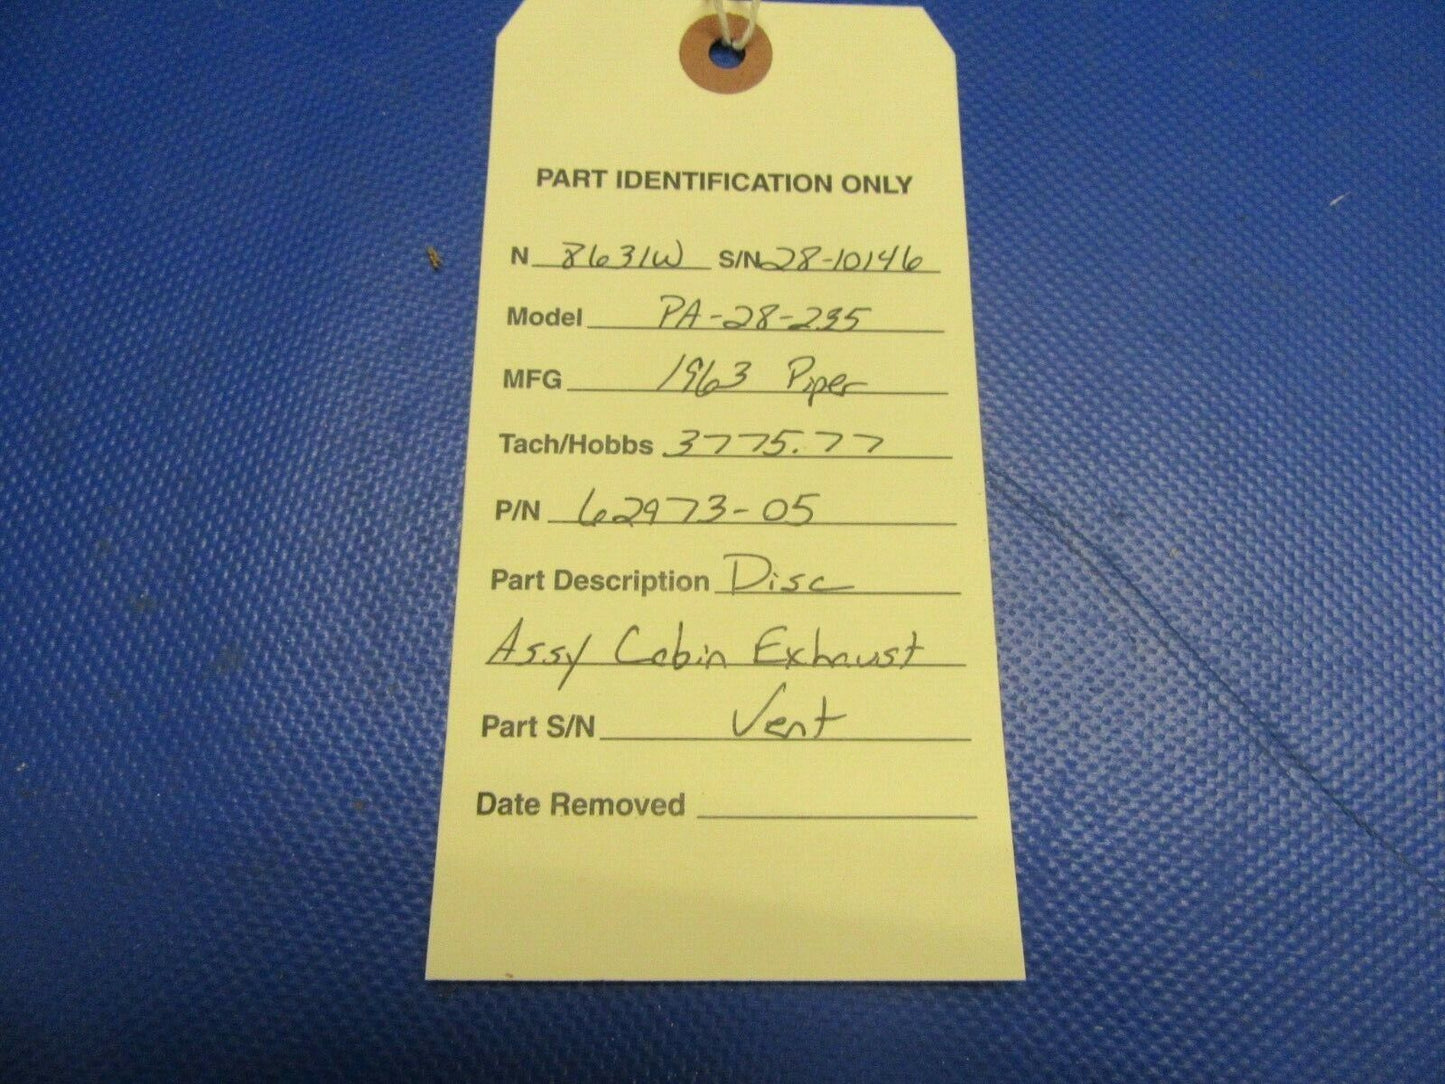 PART IDENTIFICATION ONLY
N 8631W S/N 28-10146
Model PA-28-235
MFG 1963 Piper
Tach/Hobbs 3775.77
P/N 62973-05
Part Description Disc
Assy Cabin Exhaust
Part S/N Vent
Date Removed